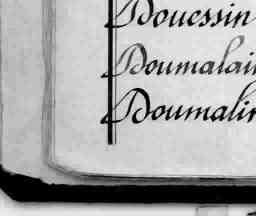 Douessin
Doumalai
Doumalin